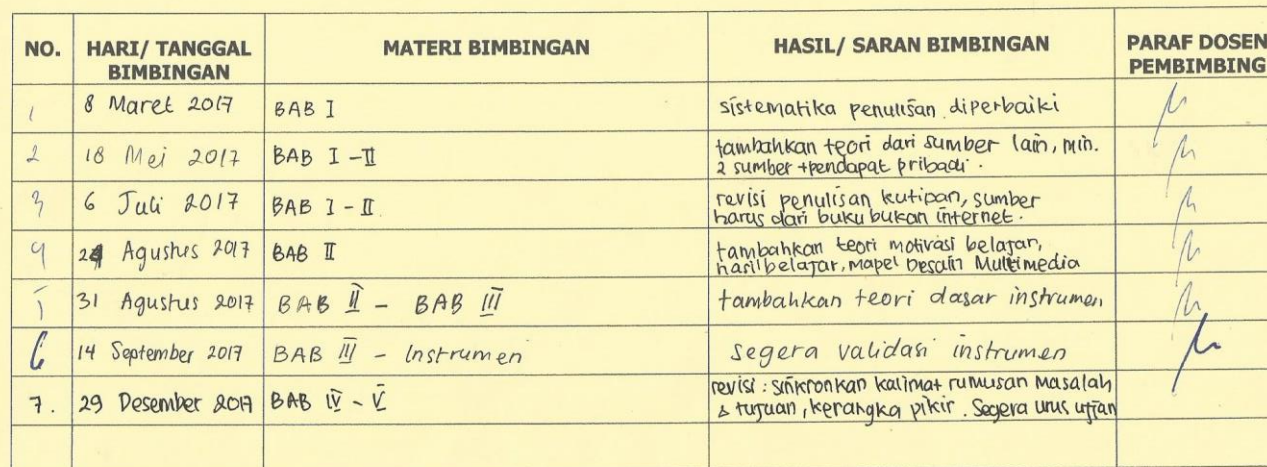 NO. HARI/ TANGGAL BIMBINGAN MATERI BIMBINGAN HASIL/ SARAN BIMBINGAN PARAF DOSEN PEMBIMBING
1 8 Maret 2017 BAB I sistematika penulisan diperbaiki
2 18 Mei 2017 BAB I - II tambahkan teori dari sumber lain, min.
2 sumber + pendapat pribadi.
3 6 Juli 2017 BAB I - II revisi penulisan kutipan, sumber
harus dari buku bukan internet.
4 24 Agustus 2017 BAB II tambahkan teori motivasi belajar,
hasil belajar, mapel Desain Multimedia
5 31 Agustus 2017 BAB II - BAB III tambahkan teori dasar instrumen
6 14 September 2017 BAB III - Instrumen segera validasi instrumen
7. 29 Desember 2017 BAB IV - V revisi : sinkronkan kalimat rumusan masalah
& tujuan, kerangka pikir. Segera urus ujian